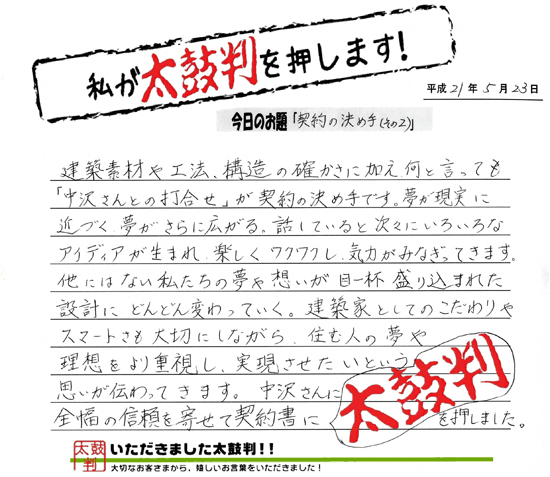 私が太鼓判を押します!
平成21年5月23日
今日のお題「契約の決め手(その2)」
建築素材や工法、構造の確かさに加え何と言っても
「中沢さんとの打合せ」が契約の決め手です。夢が現実に
近づく、夢がさらに広がる。話していると次々にいろいろな
アイディアが生まれ、楽しくワクワクし、気力がみなぎってきます。
他にはない私たちの夢や想いが目一杯盛り込まれた
設計にどんどん変わっていく。建築家としてのこだわりや
スマートさも大切にしながら、住む人の夢や
理想をより重視し、実現させたいという
思いが伝わってきます。中沢さんに
全幅の信頼を寄せて契約書に太鼓判を押しました。
太鼓判 いただきました太鼓判!!
大切なお客さまから、嬉しいお言葉をいただきました!